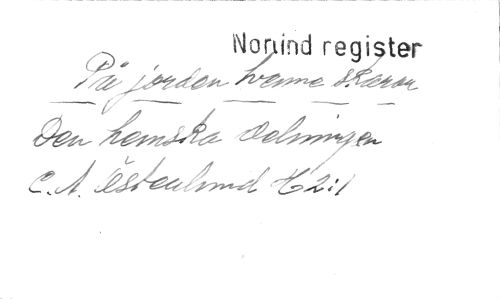 Norlind register
På jorden tvenne skaror
Den hemska delningen
C. A. Österlund H 2:1